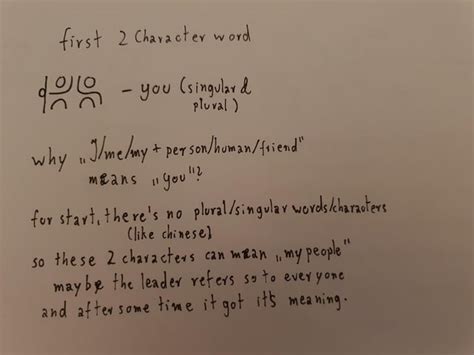 first 2 Character word
– you (singular &
plural)
why „I/me/my + person/human/friend"
means „you"?
for start, there's no plural/singular words/characters
(like chinese)
so these 2 characters can mean „my people"
maybe the leader refers so to everyone
and after some time it got it's meaning.